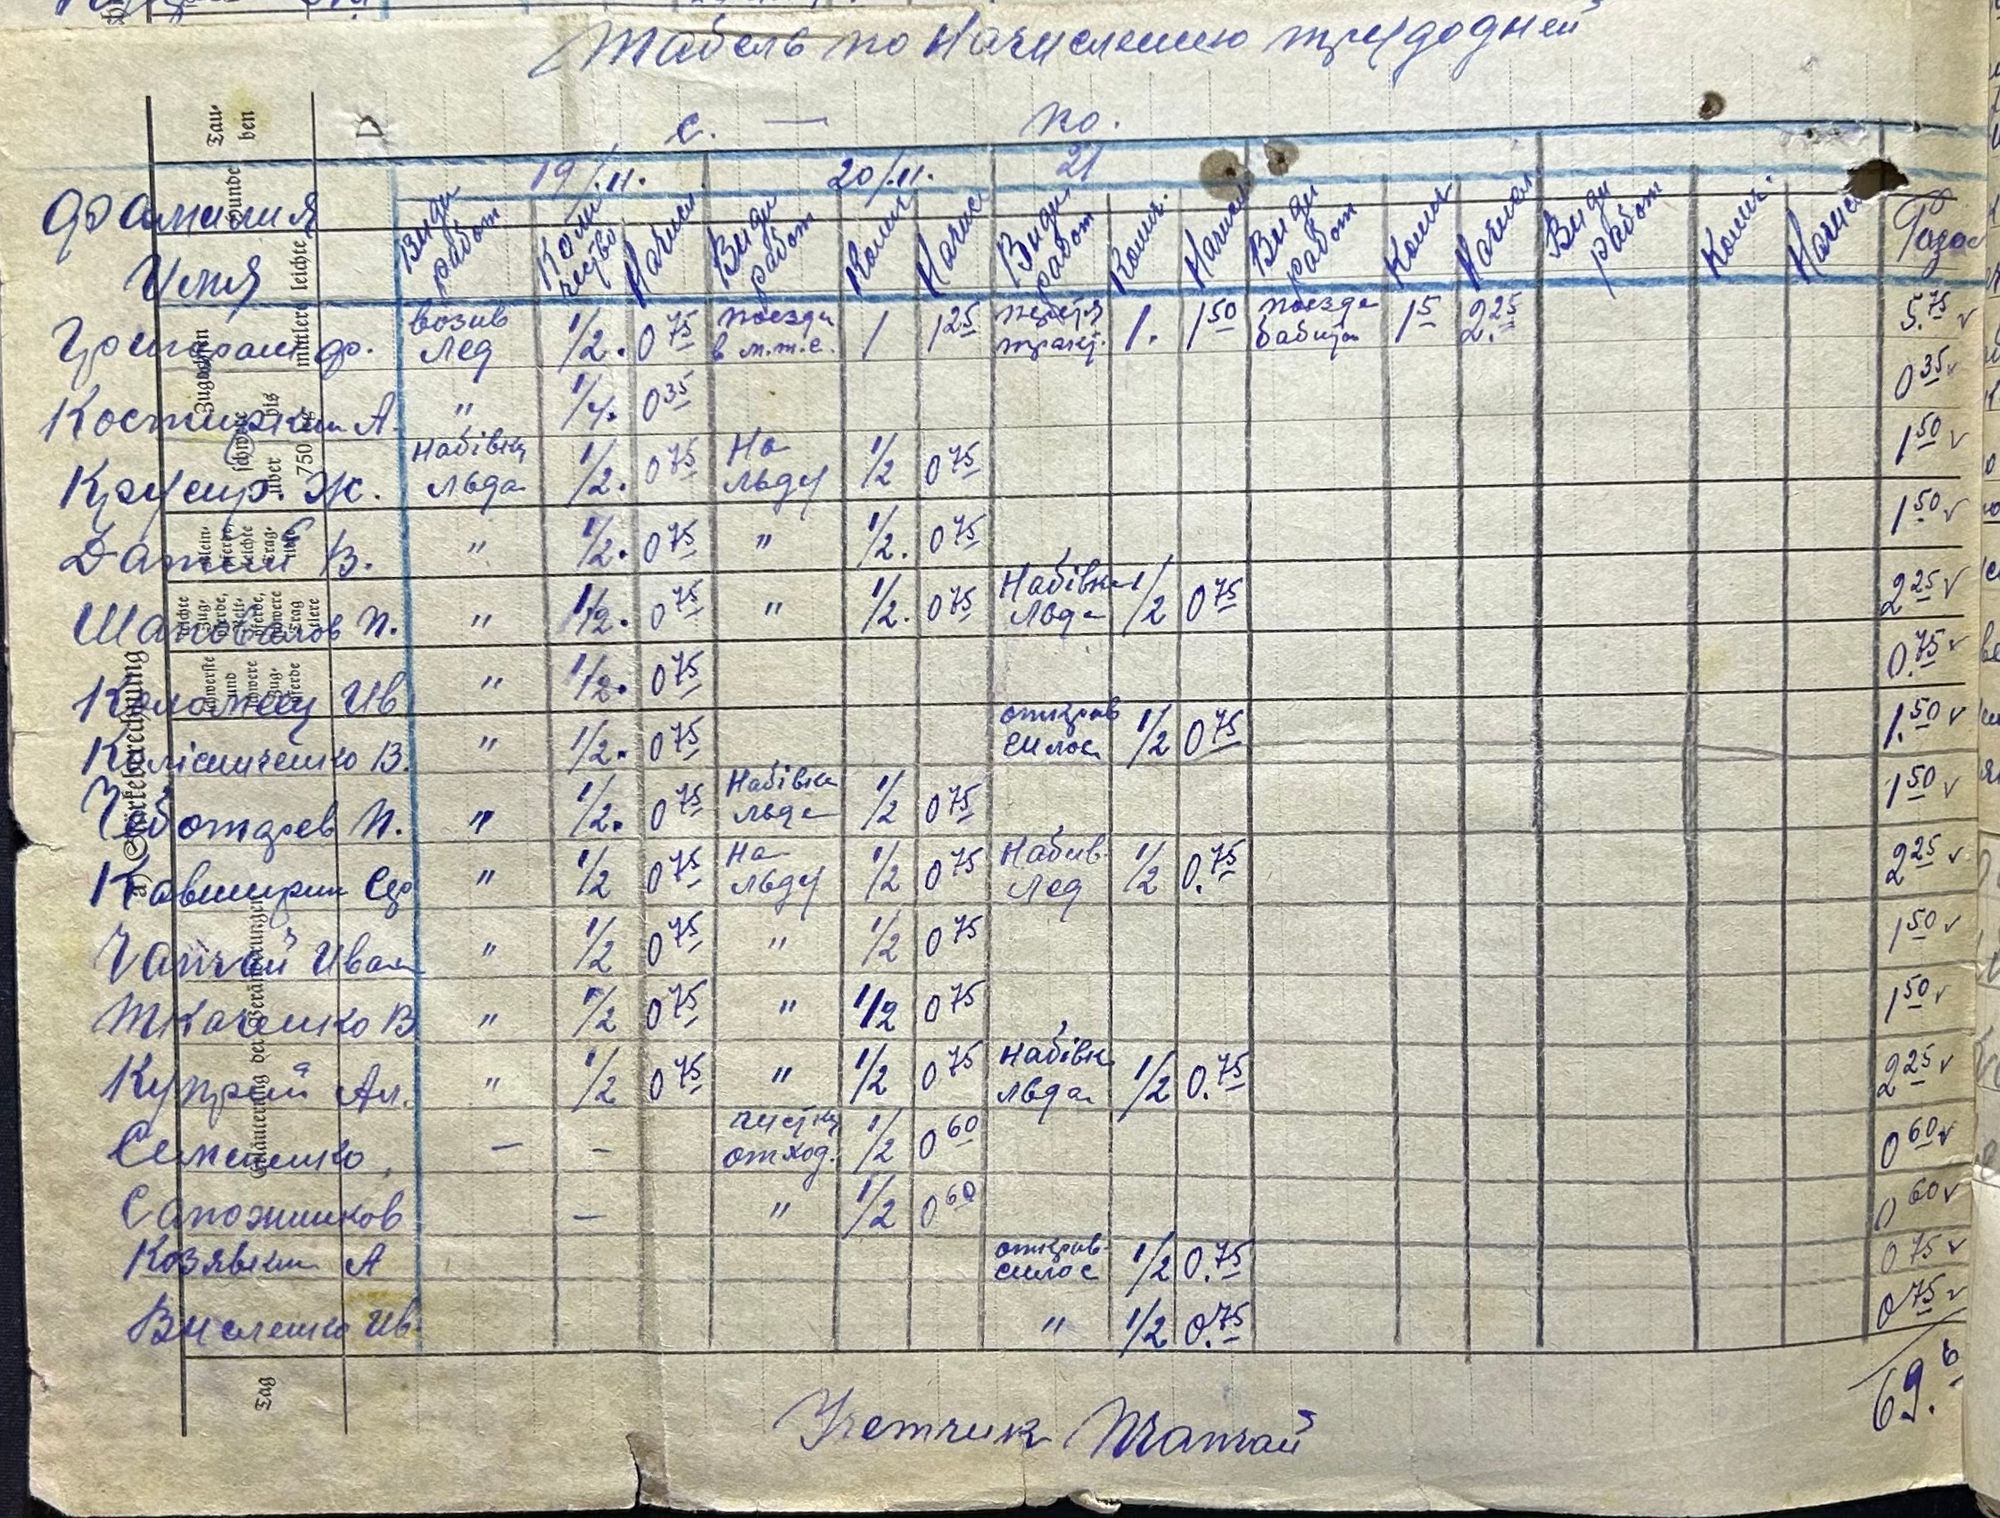 Табель по Начислению трудодней
с. — по.
19/II. 20/II. 21
Фамилия Имя Виды работ Количество Начисл Виды работ Колич Начисл Виды работ Колич. Начисл Виды работ Колич Начисл Виды работ Колич. Начисл
возив лед 1/2. 0 75 поезди в м.т.с. 1 1 25 1. 1 50 поезда 1 5 2. 25 5. 75 v
А. " 1/4. 0 35 0 35 v
Ж. Набівка льда 1/2. 0 75 На льду 1/2 0 75 1 50 v
В. " 1/2. 0 75 " 1/2. 0 75 1 50 v
Шаповалов П. " 1/2. 0 75 " 1/2. 0 75 Набівка льда 1/2 0 75 2 25 v
Коломеец Ив " 1/2. 0 75 0. 75 v
Колісниченко В. " 1/2. 0 75 открыв силос 1/2 0 75 1. 50 v
Чеботарев П. " 1/2. 0 75 Набівка льда 1/2 0 75 1 50 v
" 1/2 0 75 На льду 1/2 0 75 Набив. лед 1/2 0. 75 2 25 v
Чапчай Иван " 1/2 0 75 " 1/2 0 75 1 50 v
Ткаченко В " 1/2 0 75 " 1/2 0 75 1 50 v
Купрай Ал. " 1/2 0 75 " 1/2 0 75 Набівк льда 1/2 0. 75 2 25 v
Симоненко, — – чистка отход. 1/2 0 60 0 60 v
Сапожников — " 1/2 0 60 0 60 v
Козявкин А открыв- силос 1/2 0. 75 0 75 v
Висленко Ив. " 1/2 0. 75 0 75 v
69.
Учетчик Чапчай
Tau-
ben
Hunde
leichte
mittlere
schwere
über
750
bis
kg
Zughunde
a) Stärkeberechnung
Erläuterung der Veränderungen
Tag